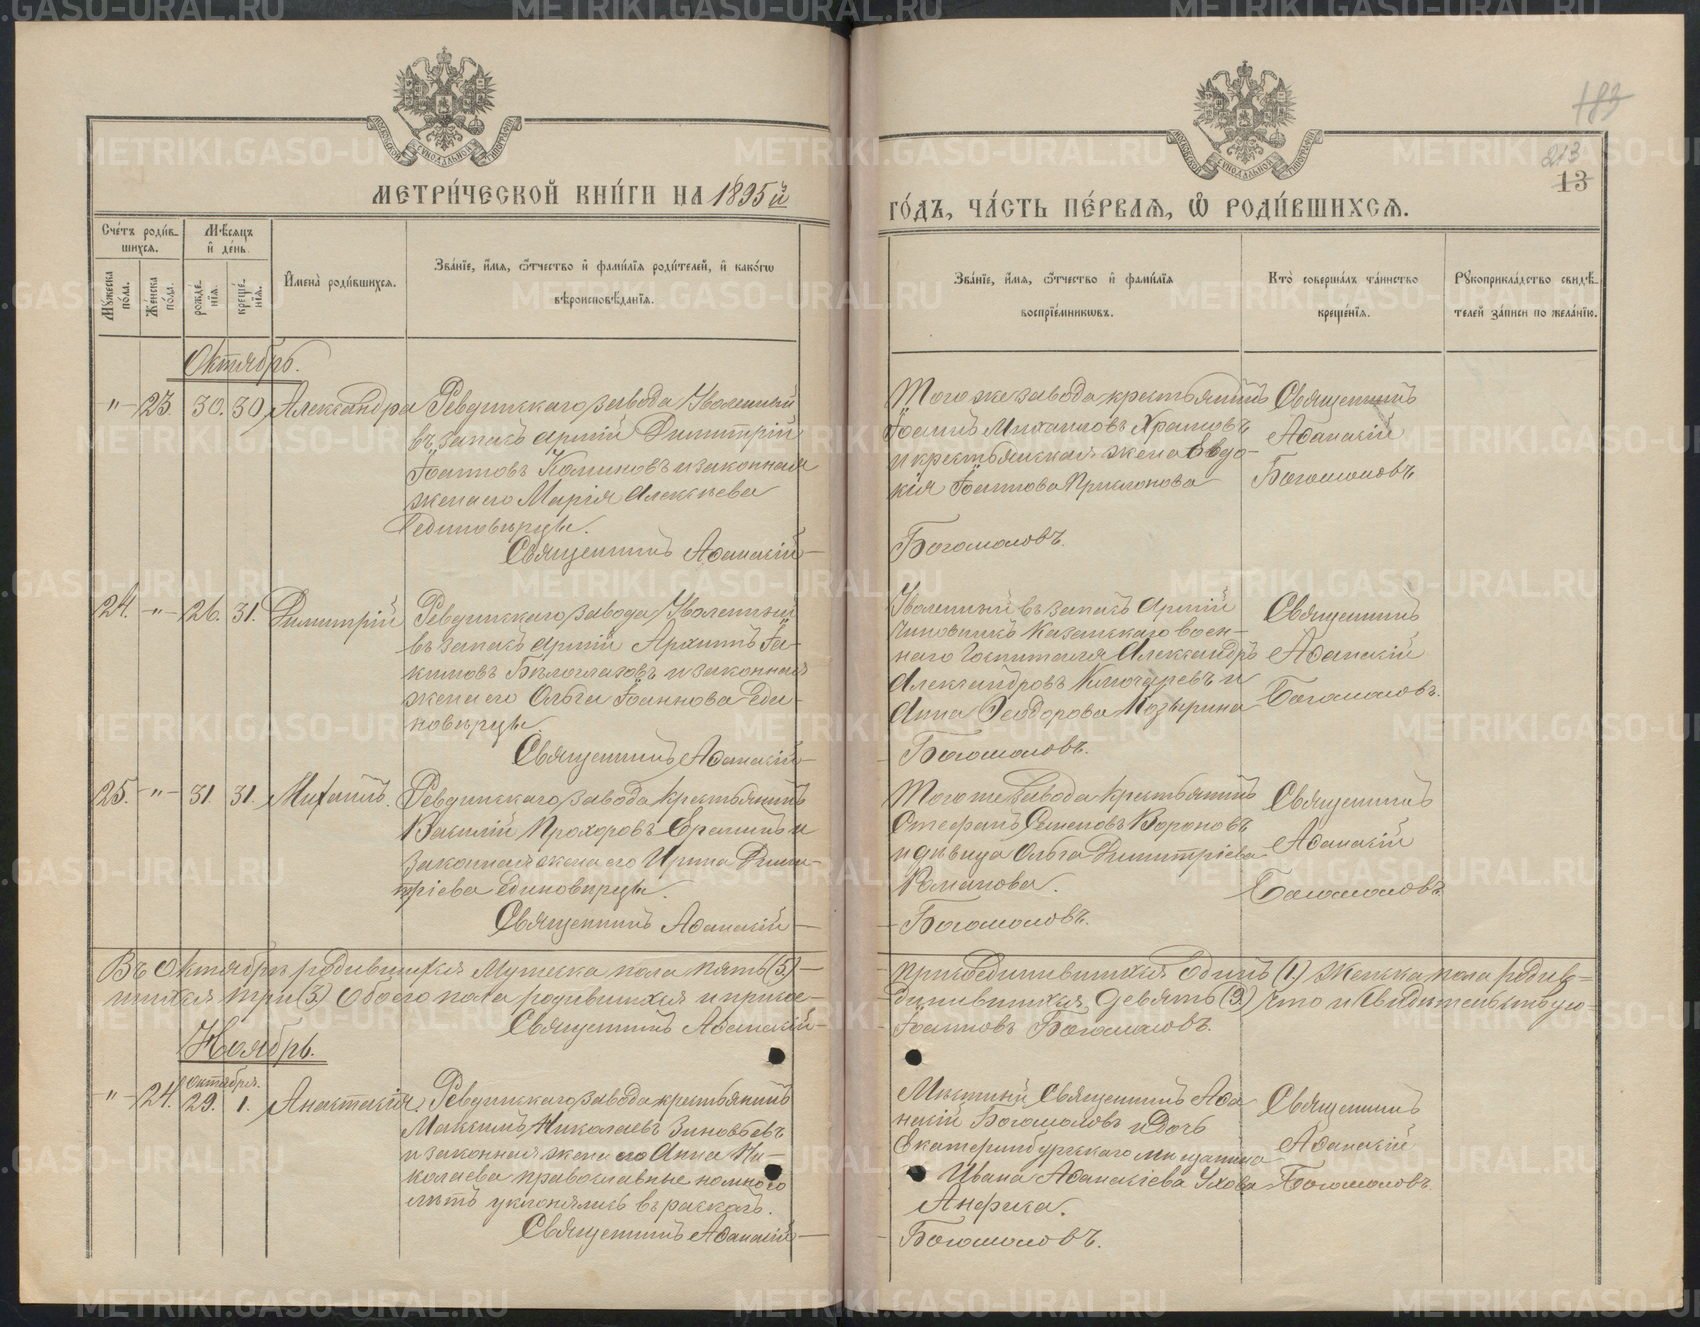 183
213
13
МЕТРИ́ЧЕСКОЙ КНИ́ГИ НА 1895й
ГО́ДЪ, ЧА́СТЬ ПЕ́РВАЯ, Ѡ РОДИ́ВШИХСЯ.
Сче́тъ роди́вшихся.
Мѣсяцъ и де́нь.
Мꙋ́жеска по́ла.
Же́нска по́ла.
рожде́нїя.
креще́нїя.
Имена̀ роди́вшихся.
Зва́нїе, и́мя, ѻ́тчество и фами́лїя роди́телей, и како́гѡ
вѣроисповѣ́данїя.
Зва́нїе, и́мя, ѻ́тчество и фами́лїя
воспрїе́мникѡвъ.
Кто̀ соверша́лъ та́инство
креще́нїя.
Рꙋкоприкла́дство свидѣ́-
телей за́писи по жела́нїю.
Октябрь.
"
23.
30.
30.
Александра
Ревдинскаго завода Уволенный
въ запасъ арміи Димитрій
Іоанновъ Коминовъ и законная
жена его Марія Алексѣева
единовѣрцы.
Священникъ Аѳанасій
Того же завода крестьянинъ
Іоаннъ Михаиловъ Храмовъ
и крестьянская жена Евдо-
кія Іоаннова
Богомоловъ.
Священникъ
Аѳанасій
Богомоловъ
24.
"
26.
31.
Димитрій
Ревдинскаго завода Уволенный
въ запасъ арміи Архипъ Іа-
кимовъ Бѣлоглазовъ и законная
жена его Ольга Іоаннова Еди-
новѣрцы
Священникъ Аѳанасій
Уволенный въ запасъ Арміи
чиновникъ Казанскаго воен-
наго Госпиталя Александръ
Александровъ Ключаревъ и
Анна Ѳеодорова Мозырина
Богомоловъ.
Священникъ
Аѳанасій
Богомоловъ.
25.
"
31.
31.
Михаилъ.
Ревдинскаго завода крестьянинъ
Василій Прохоровъ и
законная жена его Ирина Дими-
тріева Единовѣрцы.
Священникъ Аѳанасій
Того же завода крестьянинъ
Стефанъ Семеновъ Вороновъ
и дѣвица Ольга Димитріева
Романова.
Богомоловъ.
Священникъ
Аѳанасій
Богомоловъ
Въ Октябрѣ родившихся Мужеска пола пять (5)
присоединившихся Одинъ (1) Женска пола родив-
шихся три (3) Обоего пола родившихся и присое-
динившихся девять (9) что и свидѣтельствую
Священникъ Аѳанасій
Іоанновъ Богомоловъ.
Ноябрь.
Октября.
"
24.
29.
1.
Анастасія.
Ревдинскаго завода крестьянинъ
Максимъ Николаевъ Зиновьевъ
и законная жена его Анна Ни-
колаева православные но много
лѣтъ уклонялись въ расколъ.
Священникъ Аѳанасій
Мѣстный Священникъ Аѳа
насій Богомоловъ и дочь
Екатеринбургскаго мѣщанина
Ивана Аѳанасіева Ухова
Анфиса.
Богомоловъ.
Священникъ
Аѳанасій
Богомоловъ.
METRIKI.GASO-URAL.RU